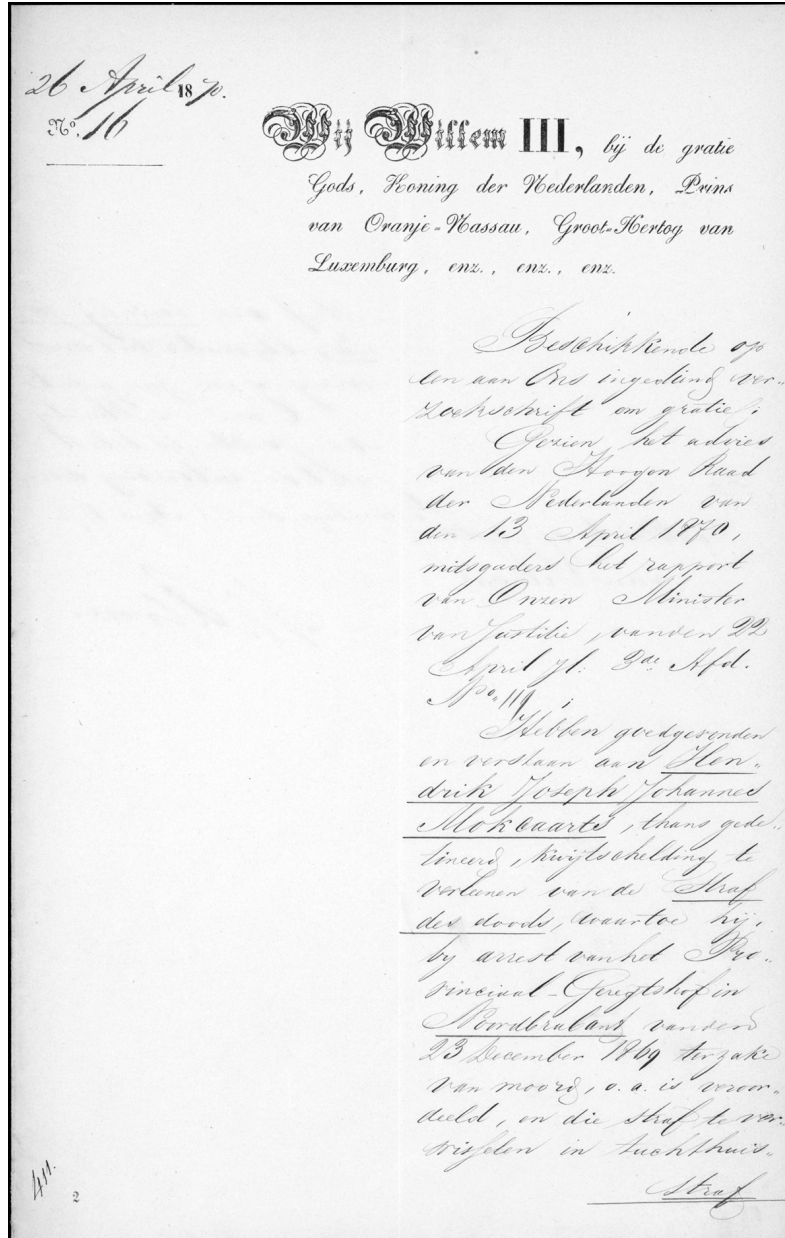 26 April 1870.
No. 16
Wij Willem III, bij de gratie
Gods, Koning der Nederlanden, Prins
van Oranje-Nassau, Groot-Hertog van
Luxemburg, enz., enz., enz.
Beschikkende op
een aan Ons ingediend ver-
zoekschrift om gratie;
Gezien het advies
van den Hoogen Raad
der Nederlanden van
den 13 April 1870,
mitsgaders het rapport
van Onzen Minister
van Justitie, van den 22
April jl. 3de Afd.
No. 119;
Hebben goedgevonden
en verstaan aan Hen-
drik Joseph Johannes
, thans gede-
tineerd, kwijtschelding te
verleenen van de Straf
des doods, waartoe hij,
by arrest van het Pro-
vinciaal-Geregtshof in
Noordbrabant, van den
23 December 1869 ter zake
van moord, o.a. is veroor-
deeld, en die straf te ver-
wisselen in tuchthuis-
straf
411.
2